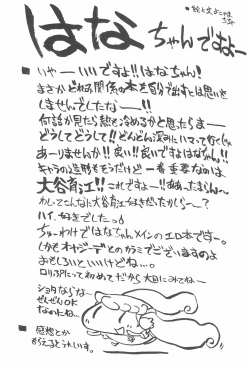 はなちゃんですよー
■いやーいいですよ!!はなちゃん!
まさかどれみ関係の本を自分で出すとは思いも
しませんでしたなー!!
何話か見たら熱も冷めるかと思ったらまー
どうしてどうして!!どんどん深みにハマって行くじゃ
あーりませんか!!良い!!良いですよはなちゃん!!
キャラの造形もそうだけど一番重要なのは、
大谷育江!!これですよー!!ああ、たまらんー
わしってこんなに大谷育江好きだったかしらー?
ハイ、好きでしたっ。
ちゅーわけではなちゃんメインのエロ本ですー。
しかもオヤジーデとのカラミでございますのよ
おもしろいといいけどね…。
ロリぷにって初めてだから大目にみてねー
ショタならなー
ぜんぜんOK
なのにねー
■感想とか
もらえるとうれしいす。